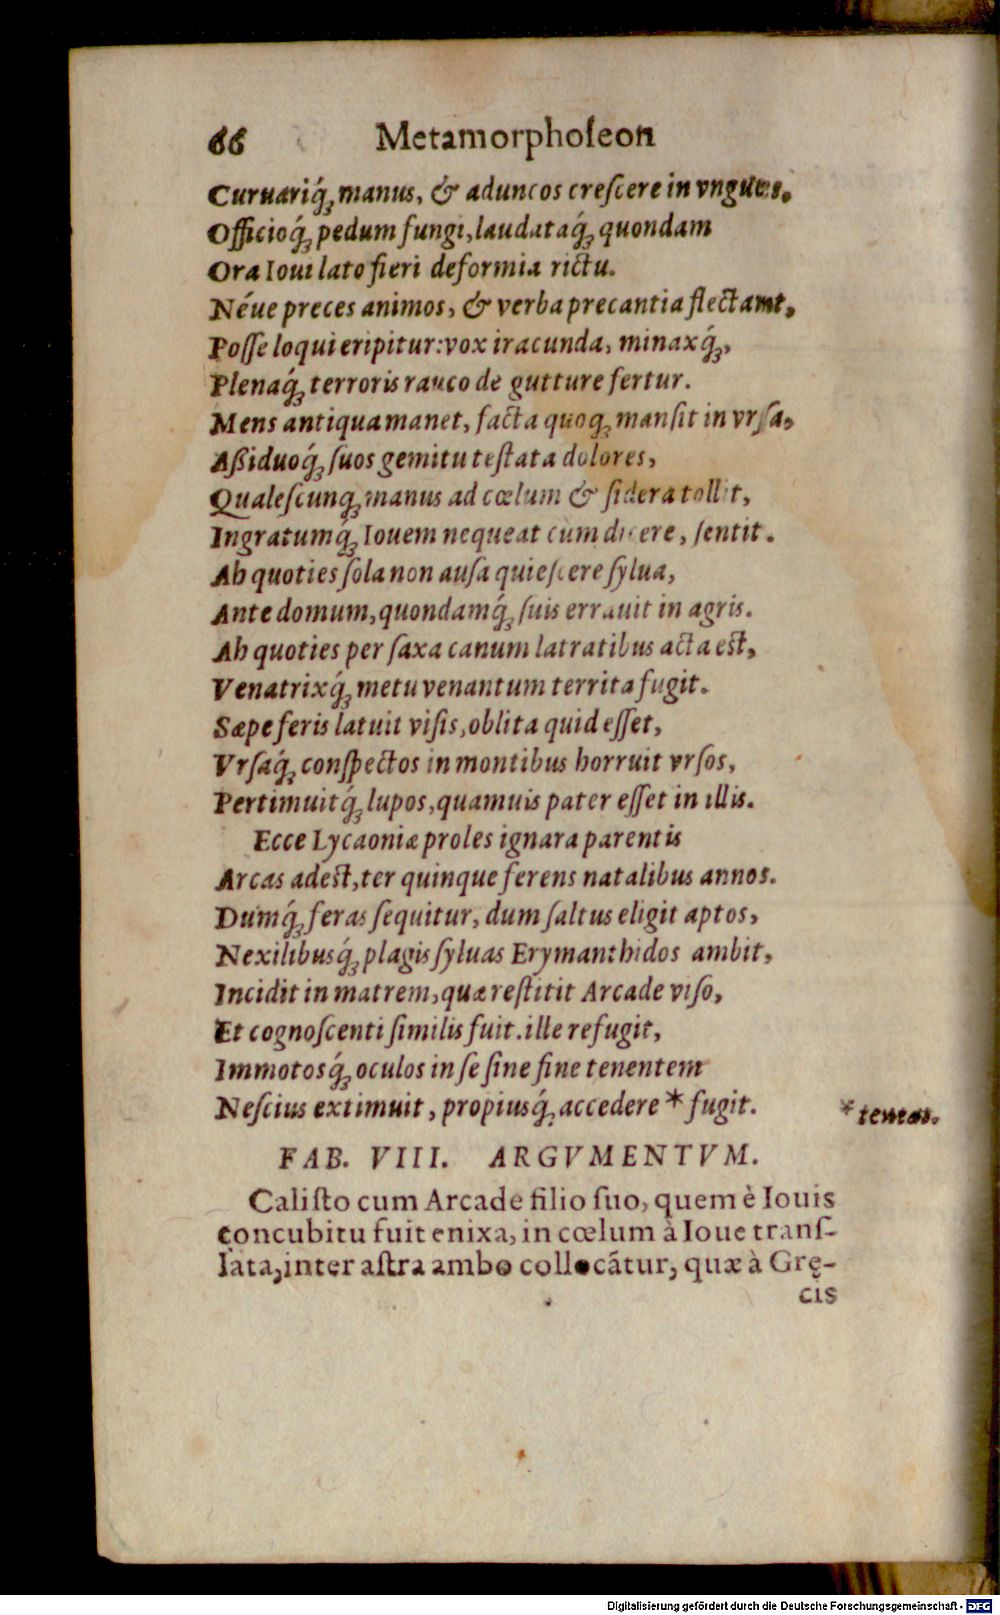 66 Metamorphoſeon
Curuariq́; manus, & aduncos creſcere in vngues.
Officioq́; pedum fungi, laudataq́; quondam
Ora Ioui lato fieri deformia rictu.
Néue preces animos, & verba precantia flectant,
Poſſe loqui eripitur: vox iracunda, minaxq́;,
Plenaq́; terroris rauco de gutture fertur.
Mens antiqua manet, facta quoq; manſit in vrſa,
Aßiduoq́; ſuos gemitu teſtata dolores,
Qualeſcunq; manus ad cœlum & ſidera tollit,
Ingratumq́; Iouem nequeat cùm dicere, ſentit.
Ah quoties ſola non auſa quieſcere ſylua,
Ante domum, quondamq́; ſuis errauit in agris.
Ah quoties per ſaxa canum latratibus acta est,
Venatrixq́; metu venantum territa fugit.
Sæpe feris latuit viſis, oblita quid eſſet,
Vrſaq́; conſpectos in montibus horruit vrſos,
Pertimuitq́; lupos, quamuis pater eſſet in illis.
Ecce Lycaoniæ proles ignara parentis
Arcas adest, ter quinque ferens natalibus annos.
Dumq́; feras ſequitur, dum ſaltus eligit aptos,
Nexilibusq́; plagis ſyluas Erymanthidos ambit,
Incidit in matrem, quæ reſtitit Arcade viſo,
Et cognoſcenti ſimilis fuit. ille refugit,
Immotosq́; oculos in ſe ſine fine tenentem
Neſcius extimuit, propiusq́; accedere * fugit.
* tentas.
FAB. VIII. ARGVMENTVM.
Caliſto cum Arcade filio ſuo, quem è Iouis
concubitu fuit enixa, in cœlum à Ioue tranſ-
lata, inter aſtra ambo collocãtur, quæ à Grę-
cis
Digitalisierung gefördert durch die Deutsche Forschungsgemeinschaft - DFG